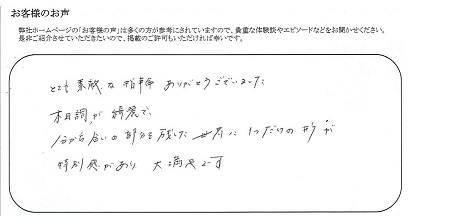 お客様のお声
弊社ホームページの「お客様の声」は多くの方が参考にされていますので、貴重な体験談やエピソードなどをお聞かせください。
是非ご紹介させていただきたいので、掲載のご許可もいただければ幸いです。
とても素敵な指輪 ありがとうございました
木目調が綺麗で、
分かち合いの部分を残した 世界に1つだけの形が
特別感があり 大満足です